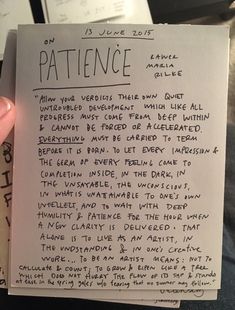 13 JUNE 2015
ON
PATIENCE
RAINER
MARIA
RILKE
"ALLOW YOUR VERDICTS THEIR OWN QUIET
UNTROUBLED DEVELOPMENT WHICH LIKE ALL
PROGRESS MUST COME FROM DEEP WITHIN
& CANNOT BE FORCED OR ACCELERATED.
EVERYTHING MUST BE CARRIED TO TERM
BEFORE IT IS BORN. TO LET EVERY IMPRESSION &
THE GERM OF EVERY FEELING COME TO
COMPLETION INSIDE, IN THE DARK, IN
THE UNSAYABLE, THE UNCONSCIOUS,
IN WHAT IS UNATTAINABLE TO ONE'S OWN
INTELLECT, AND TO WAIT WITH DEEP
HUMILITY & PATIENCE FOR THE HOUR WHEN
A NEW CLARITY IS DELIVERED. THAT
ALONE IS TO LIVE AS AN ARTIST, IN
THE UNDSTANDING & IN ONE'S CREATIVE
WORK... TO BE AN ARTIST MEANS: NOT TO
CALCULATE & COUNT; TO GROW & RIPEN LIKE A TREE
WHICH DOES NOT HURRY THE FLOW OF ITS SAP & STANDS
AT EASE IN THE SPRING GALES W/O FEARING THAT NO SUMMER MAY FOLLOW."